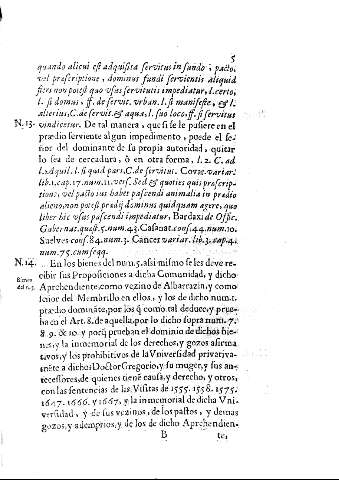 5
quando alicui est adquisita servitus in fundo; pacto,
vel præscriptione, dominus fundi servientis aliquid
fieri non potest quo usus servitutis impediatur, l. certo,
l. si domus, ff. de servit. urban. l. si manifeste, & l.
alterius, C. de servit. & aqua, l. suo loco, ff. si servitus
N. 13. vindicetur. De tal manera, que si se le pusiere en el
prædio serviente algun impedimento, puede el se-
ñor del dominante de su propia autoridad, quitar
lo sea de cercadura, ò en otra forma, l. 2. C. ad
l. aquil. l. si quid pars. C. de servitus. Covar. variar.
lib. 1. cap. 17. num. 11. vers. Sed & quoties quis præscrip-
tione, vel pacto ius habet pascendi animalia in prædio
alieno, non potest prædij dominus quidquam agere, quo
liber hic usus pascendi impediatur, Bardaxi de Offic.
Gubernat. quæst. 5. num. 43. Casanat. cons. 44. num. 10.
Suelves cons. 84. num. 3. Cancer variar. lib. 3. cap. 4.
num. 75. cum seqq.
N. 14. En los bienes del num. 5. assi mismo se les deve re-
Bienes
del n. 5.
cibir sus Proposiciones à dicha Comunidad, y dicho
Aprehendiente, como vezino de Albarrazin, y como
señor del Membrillo en ellos, y los de dicho num. 1.
prædio dominãte, por los q̃ como tal deduce, y prue-
ba en el Art. 8. de aquella, por lo dicho supra num. 7.
8. 9. & 10. y porq̃ prueban el dominio de dichos bie-
nes, y la inmemorial de los derechos, y gozos afirma
tivos, y los prohibitivos de la Vniversidad privativa-
mẽte à dichos Doctor Gregorio, y su muger, y sus an-
tecessores, de quienes tiene causa, y derecho, y otros,
con las sentencias de las Visitas de 1555. 1558. 1575.
1647. 1666. y 1667. y la inmemorial de dicha Vni-
versidad, y de sus vezinos, de los pastos, y demàs
gozos, y ademprios, y de los de dicho Aprehendien-
B te,